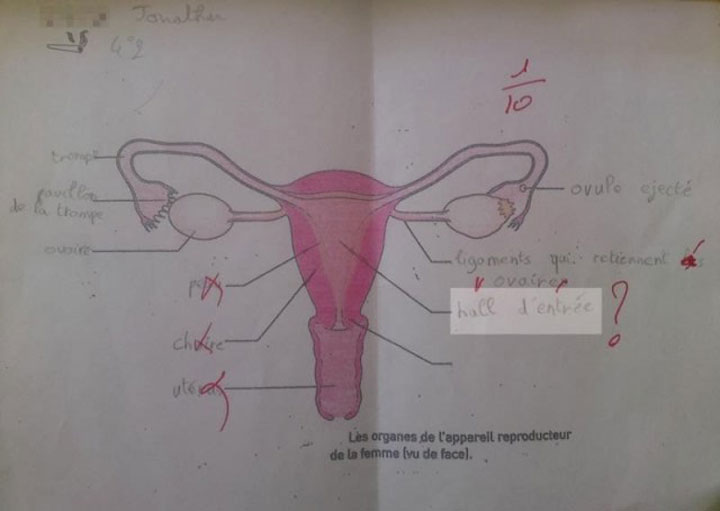 Jonathan
4°2
1/10
trompe
pavillon
de la trompe
ovaire
ovule éjecté
ligaments qui retiennent les
ovaires
hall d'entrée ?
utérus
Les organes de l'appareil reproducteur
de la femme (vu de face).